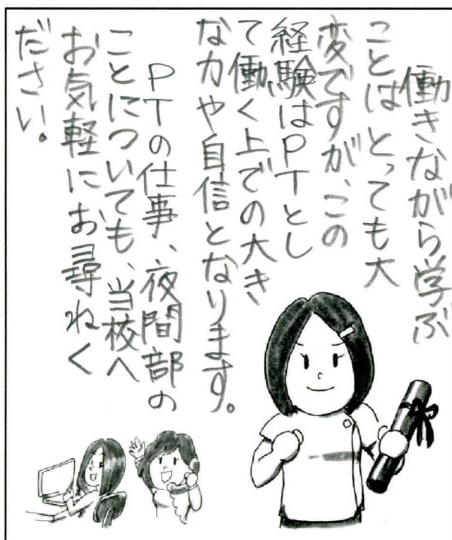 働きながら学ぶ
ことはとっても大
変ですが、この
経験はPTとし
て働く上での大き
な力や自信となります。
PTの仕事、夜間部の
ことについても、当校へ
お気軽にお尋ねく
ださい。